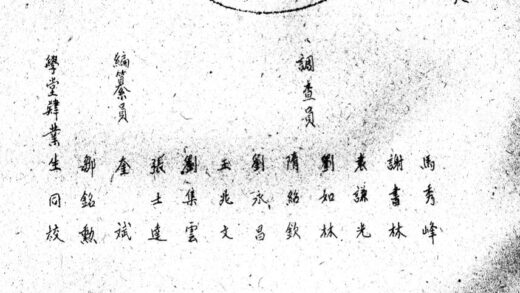 調查員
馬秀峰
謝書林
袁謙光
劉如林
隋紹欽
劉永昌
王兆文
劉集雲
張士達
編纂員
奎斌
鄒銘勳
學堂肄業生同校